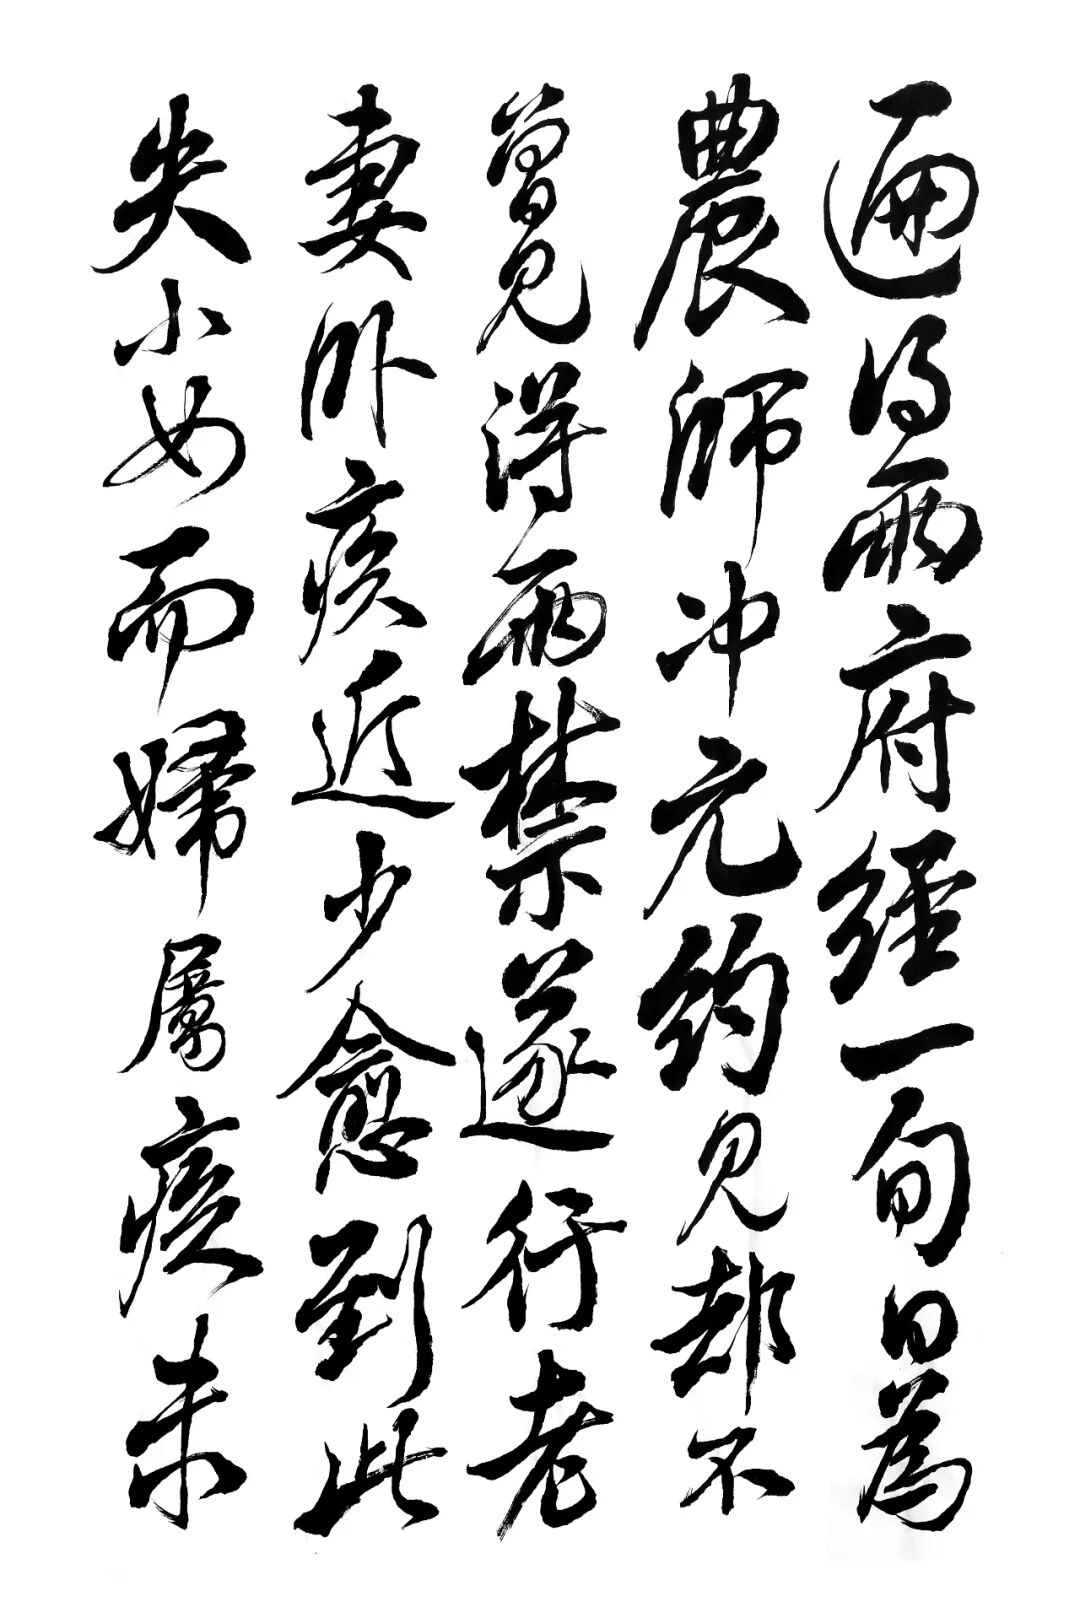 遍得兩府經一旬日為
農師冲元約見却不
曾見得兩禁遂行老
妻卧疾近少愈到此
失小女而婦屬疾未